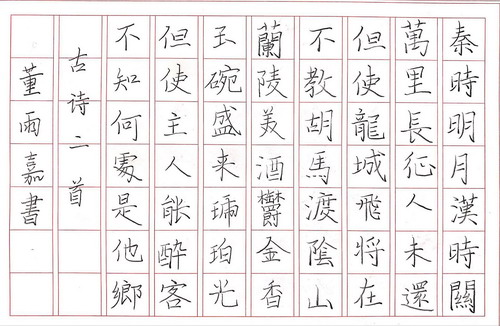 秦時明月漢時關
萬里長征人未還
但使龍城飛將在
不教胡馬渡陰山
蘭陵美酒欝金香
玉碗盛来琥珀光
但使主人能醉客
不知何處是他鄉
古诗二首
董雨嘉書